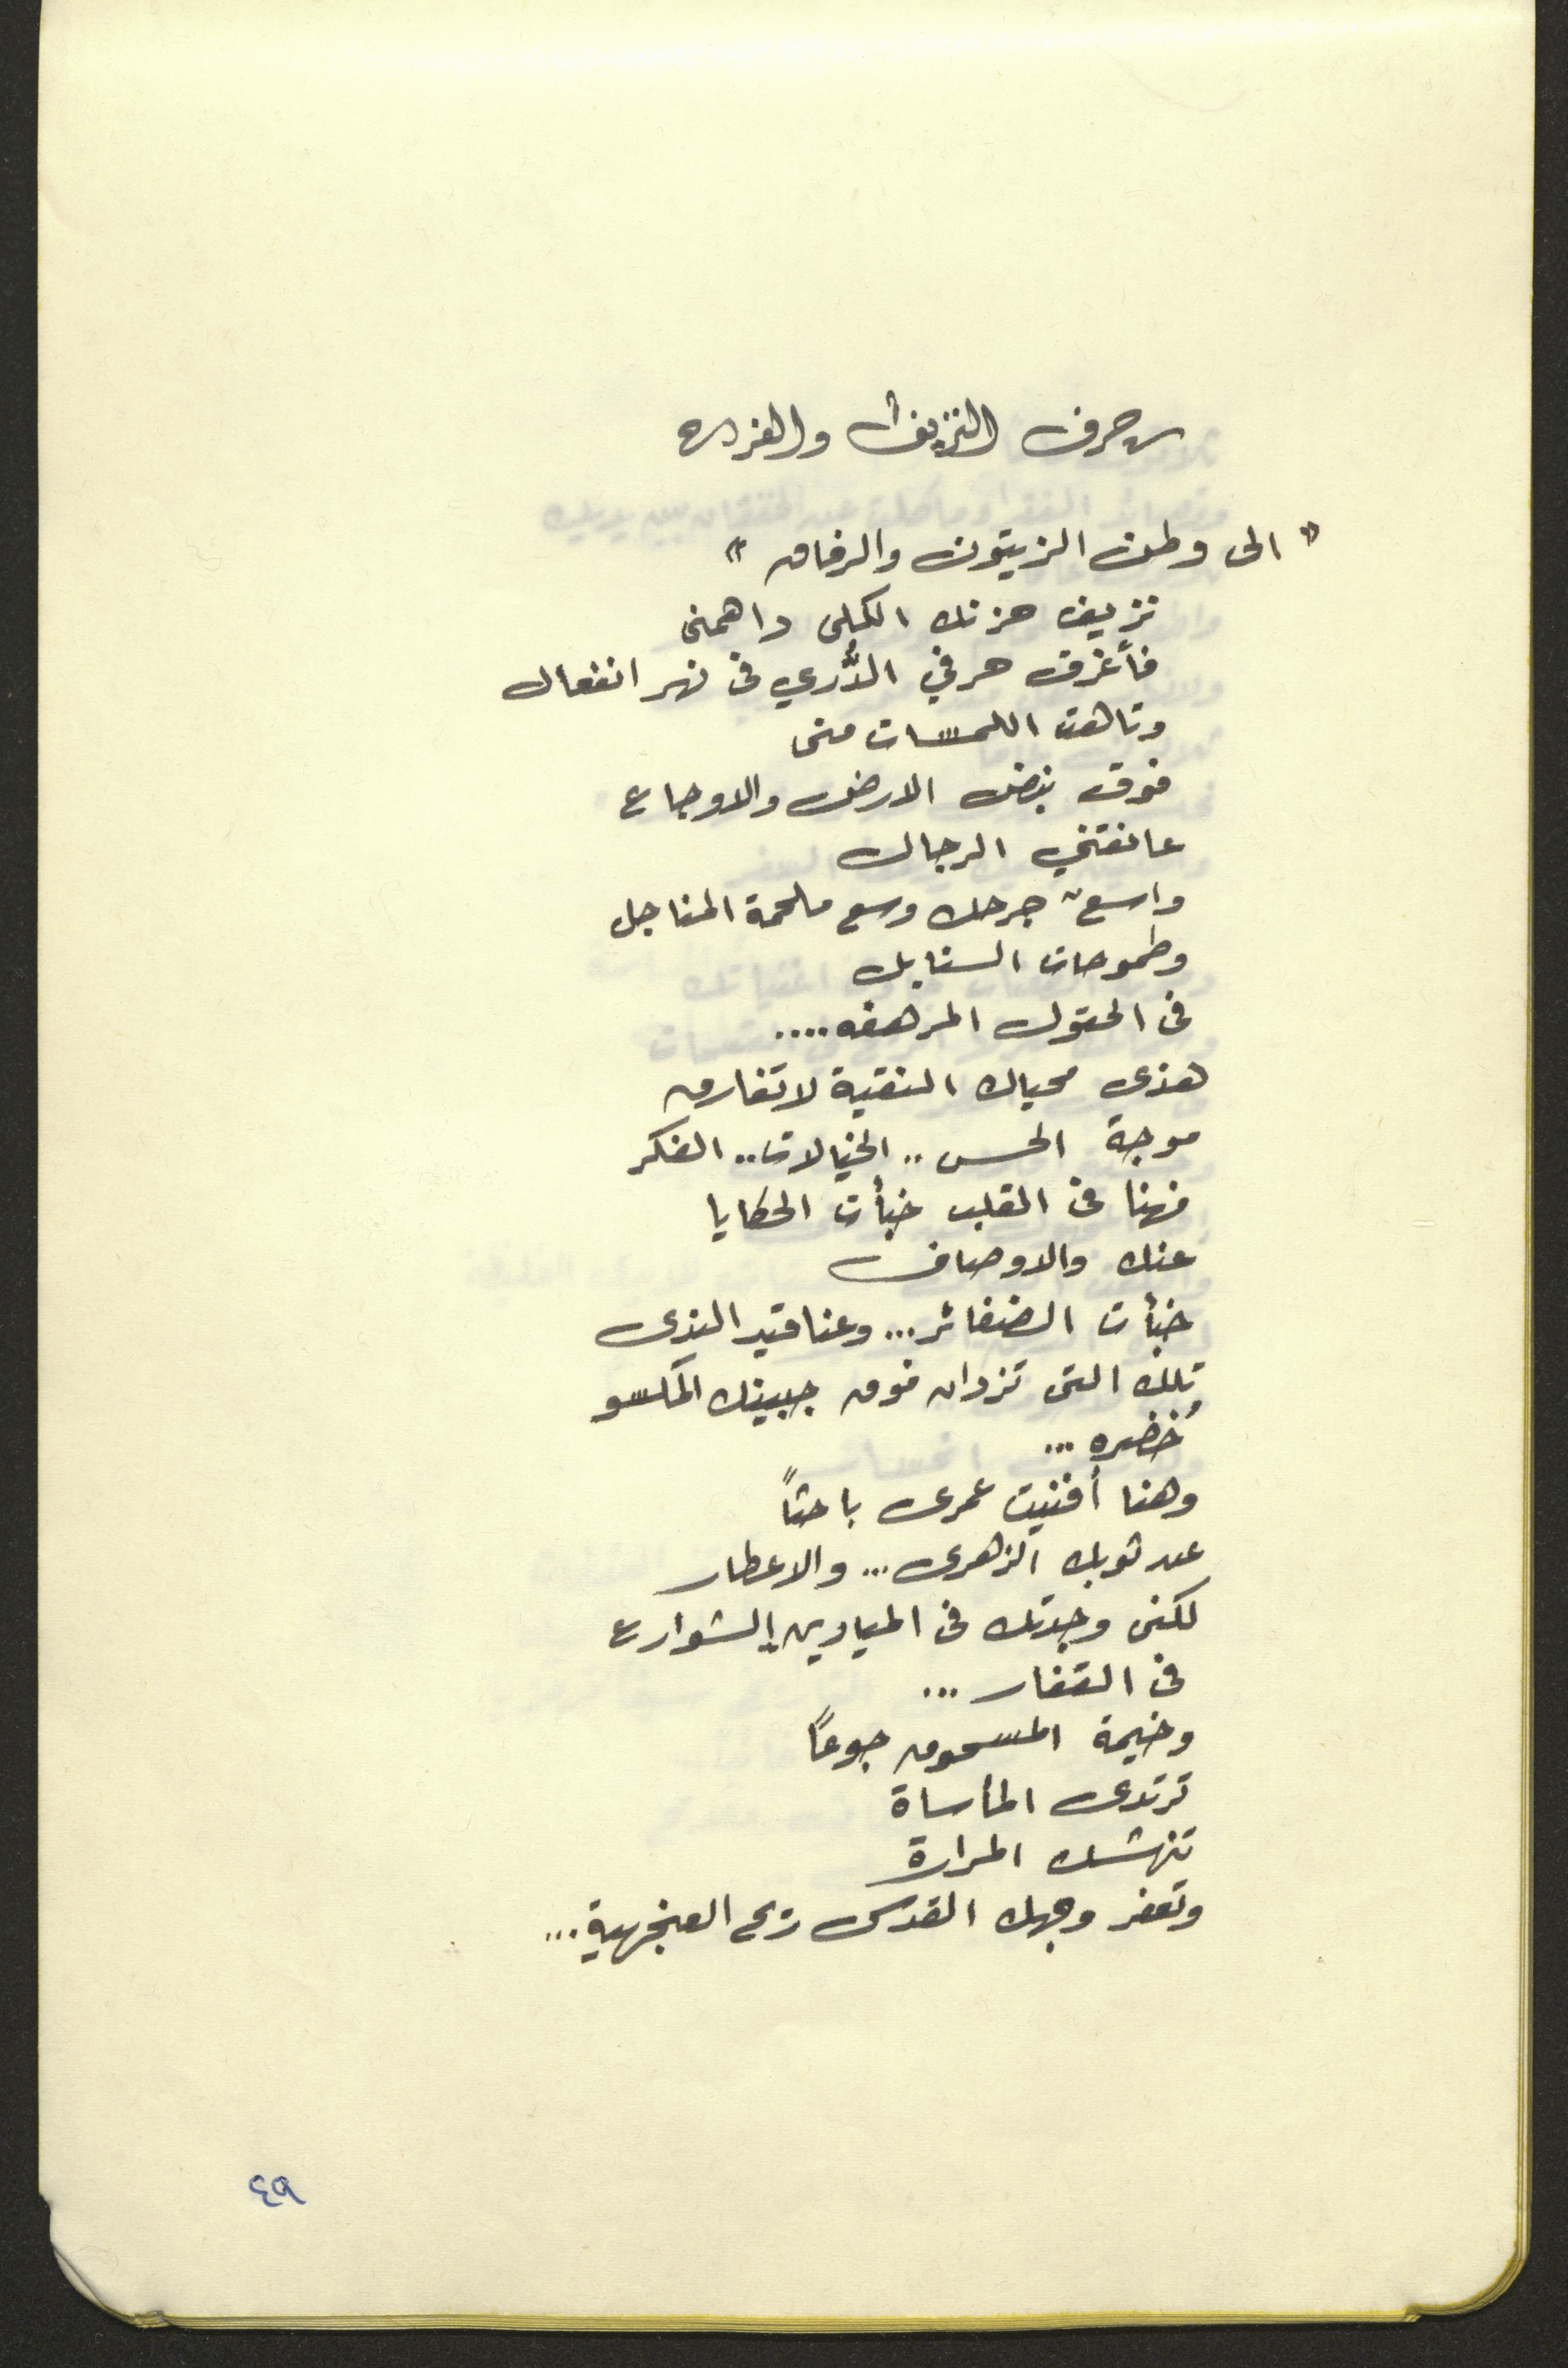 حرف النزيف والغزده
" الى وطن الزيتون والرفاق "
نزيف حزنك الكلى داهمنى
فأغرق حرفي الدُّري فى نهر انفعال
وتاهت اللمسات منى
فوق نبض الارض والاوجاع
عانقتني الرجال
واسعٌ جرحك وسع ملحمة المناجل
وطموحات السنابل
فى الحقول المرهفه ....
هذى محياك النقية لا تفارق
موجة الحس .. الخيالات .. الفكر
فهنا فى القلب خبأت الحكايا
عنك والاوصاف
خبأت الضفائر ... وعناقيد الندى
تلك التى تزدان فوق جبينك المكسو
خضره ...
وهنا أفنيت عمرى باحثاً
عن ثوبك الزهرى ... والاعطار
لكنى وجدتك فى الميادين الشوارع
فى القفار ...
وخيمة المسحوق جوعاً
ترتدى المأساة
تنهشك المرارة
وتعفر وجهك القدسى ريح العنجهية ...
٤٩